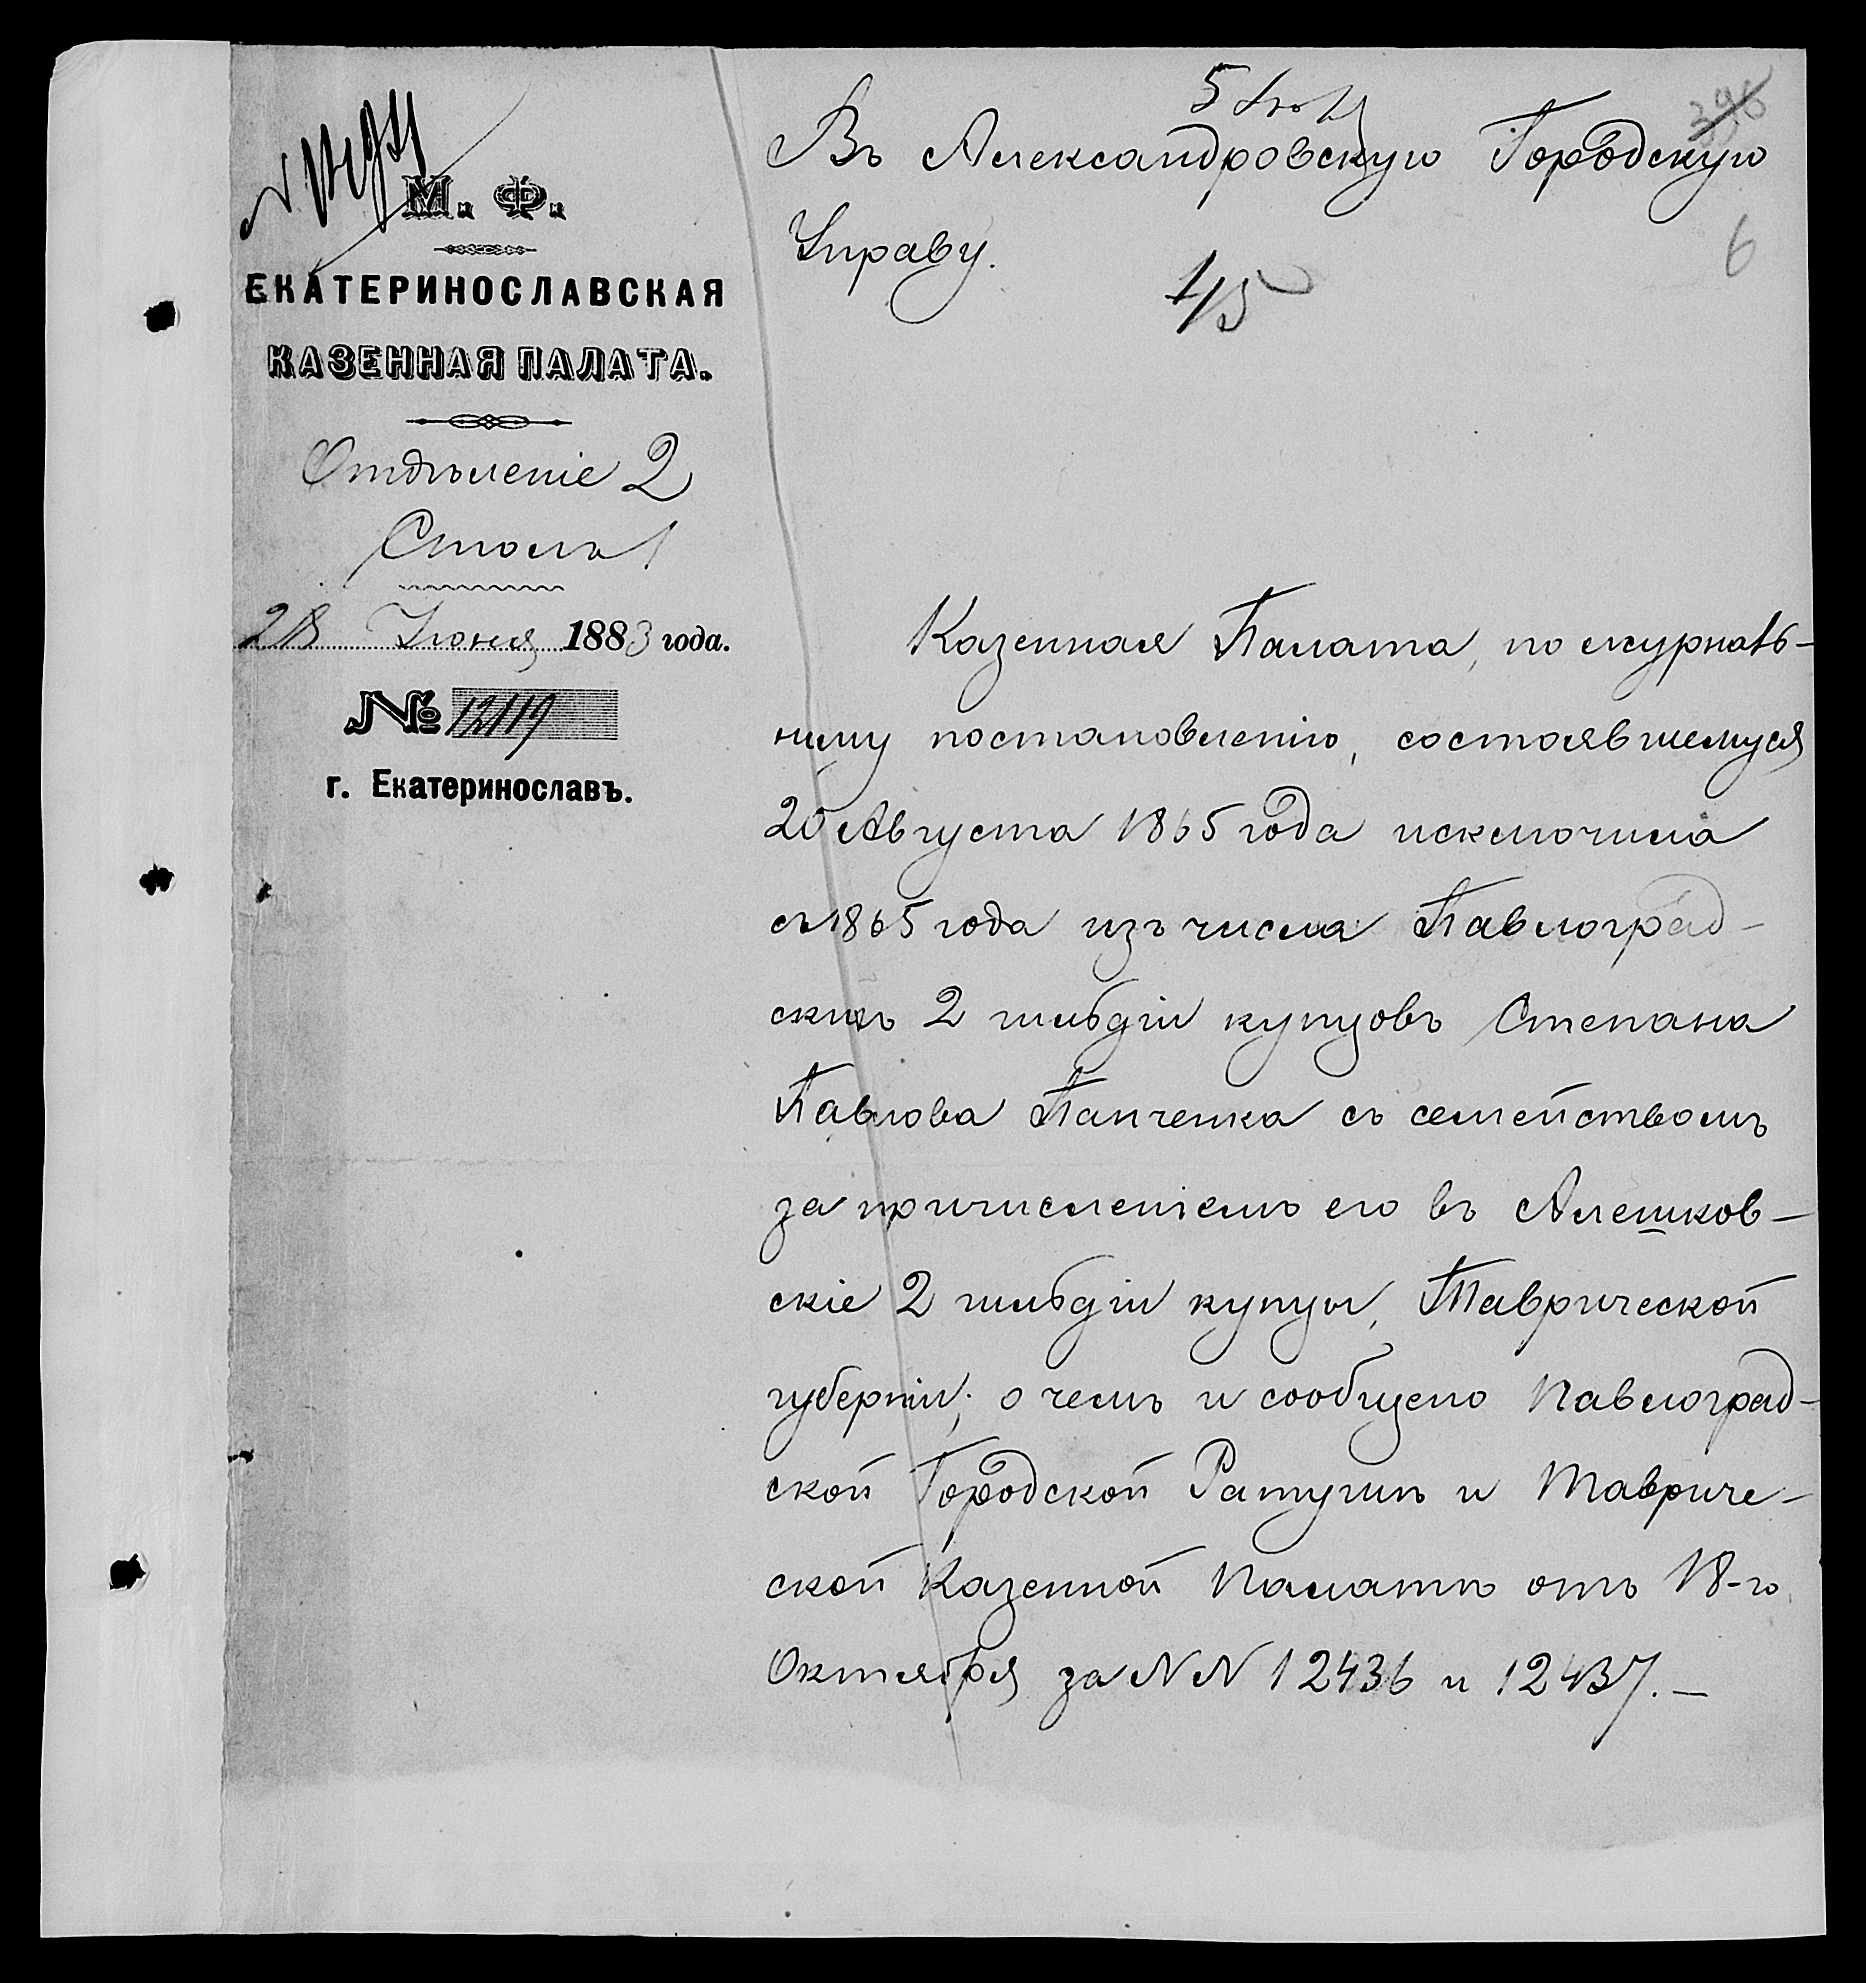 396
6
М. Ф.
ЕКАТЕРИНОСЛАВСКАЯ
КАЗЕННАЯ ПАЛАТА.
Отдѣленіе 2
Столъ 1
28 Іюня 1883 года.
№ 12119
г. Екатеринославъ.
Въ Александровскую Городскую
Управу.
Казенная Палата, по журналь-
ному постановленію, состоявшемуся
20 Августа 1865 года исключила
съ 1865 года изъ числа Павлоград-
скихъ 2 гильдіи купцовъ Степана
Павлова Панченка съ семействомъ
за причисленіемъ его въ Алешков-
скіе 2 гильдіи купцы, Таврической
губерніи; о чемъ и сообщено Павлоград-
ской Городской Ратушѣ и Тавриче-
ской Казенной Палатѣ отъ 18-го
Октября за NN 12436 и 12437.—